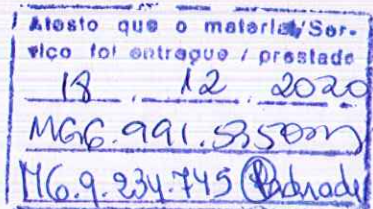 Atesto que o material/Ser-
viço foi entregue / prestado
18 . 12 . 2020
MG6.991.535
MG.9.234.745 Andrade